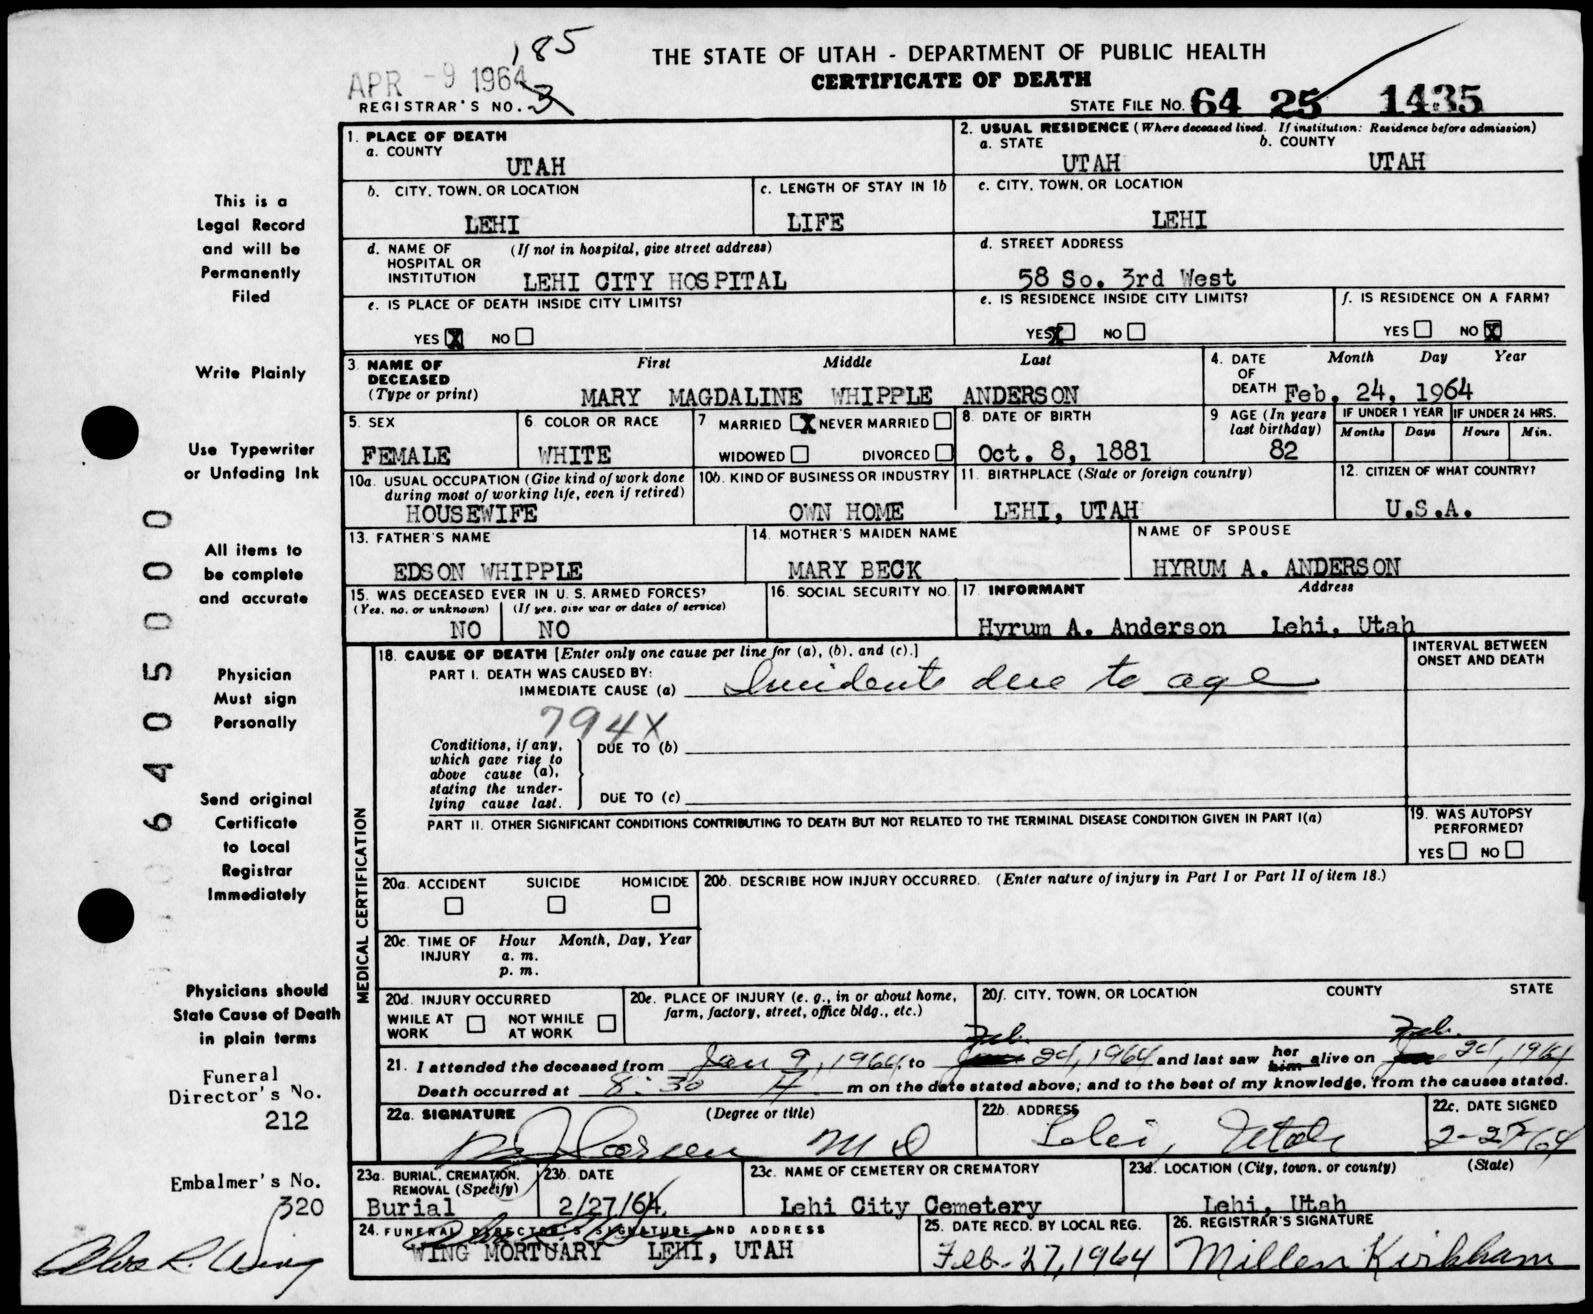 185
APR -9 1964
THE STATE OF UTAH - DEPARTMENT OF PUBLIC HEALTH
CERTIFICATE OF DEATH
REGISTRAR'S NO. 3
STATE FILE NO. 64 25 1435
1. PLACE OF DEATH
a. COUNTY
UTAH
2. USUAL RESIDENCE (Where deceased lived. If institution: Residence before admission)
a. STATE b. COUNTY
UTAH UTAH
b. CITY, TOWN, OR LOCATION
LEHI
c. LENGTH OF STAY IN 1b
LIFE
c. CITY, TOWN, OR LOCATION
LEHI
d. NAME OF HOSPITAL OR INSTITUTION (If not in hospital, give street address)
LEHI CITY HOSPITAL
d. STREET ADDRESS
58 So. 3rd West
e. IS PLACE OF DEATH INSIDE CITY LIMITS?
YES X NO
e. IS RESIDENCE INSIDE CITY LIMITS?
YES X NO
f. IS RESIDENCE ON A FARM?
YES NO X
3. NAME OF DECEASED (Type or print)
First Middle Last
MARY MAGDALINE WHIPPLE ANDERSON
4. DATE OF DEATH
Month Day Year
Feb. 24, 1964
5. SEX
FEMALE
6. COLOR OR RACE
WHITE
7 MARRIED X NEVER MARRIED
WIDOWED DIVORCED
8. DATE OF BIRTH
Oct. 8, 1881
9 AGE (In years last birthday)
82
IF UNDER 1 YEAR IF UNDER 24 HRS.
Months Days Hours Min.
10a. USUAL OCCUPATION (Give kind of work done during most of working life, even if retired)
HOUSEWIFE
10b. KIND OF BUSINESS OR INDUSTRY
OWN HOME
11. BIRTHPLACE (State or foreign country)
LEHI, UTAH
12. CITIZEN OF WHAT COUNTRY?
U.S.A.
13. FATHER'S NAME
EDSON WHIPPLE
14. MOTHER'S MAIDEN NAME
MARY BECK
NAME OF SPOUSE
HYRUM A. ANDERSON
15. WAS DECEASED EVER IN U. S. ARMED FORCES?
(Yes, no, or unknown) (If yes, give war or dates of service)
NO NO
16. SOCIAL SECURITY NO.
17. INFORMANT Address
Hyrum A. Anderson Lehi, Utah
MEDICAL CERTIFICATION
18. CAUSE OF DEATH [Enter only one cause per line for (a), (b), and (c).]
INTERVAL BETWEEN ONSET AND DEATH
PART I. DEATH WAS CAUSED BY:
IMMEDIATE CAUSE (a) Incidents due to age
794X
Conditions, if any, which gave rise to above cause (a), stating the underlying cause last.
DUE TO (b)
DUE TO (c)
PART II. OTHER SIGNIFICANT CONDITIONS CONTRIBUTING TO DEATH BUT NOT RELATED TO THE TERMINAL DISEASE CONDITION GIVEN IN PART I(a)
19. WAS AUTOPSY PERFORMED?
YES NO
20a. ACCIDENT SUICIDE HOMICIDE
20b. DESCRIBE HOW INJURY OCCURRED. (Enter nature of injury in Part I or Part II of item 18.)
20c. TIME OF INJURY
Hour Month, Day, Year
a. m.
p. m.
20d. INJURY OCCURRED
WHILE AT WORK NOT WHILE AT WORK
20e. PLACE OF INJURY (e. g., in or about home, farm, factory, street, office bldg., etc.)
20f. CITY, TOWN, OR LOCATION COUNTY STATE
Feb. Feb.
21. I attended the deceased from Jan 9, 1964, to 24, 1964 and last saw her him alive on 24, 1964
Death occurred at 8:30 A m on the date stated above; and to the best of my knowledge, from the causes stated.
22a. SIGNATURE (Degree or title)
M D
22b. ADDRESS
Lehi, Utah
22c. DATE SIGNED
23a. BURIAL, CREMATION, REMOVAL (Specify)
Burial
23b. DATE
2/27/64
23c. NAME OF CEMETERY OR CREMATORY
Lehi City Cemetery
23d. LOCATION (City, town, or county) (State)
Lehi, Utah
24. FUNERAL DIRECTOR'S SIGNATURE AND ADDRESS
WING MORTUARY LEHI, UTAH
25. DATE RECD. BY LOCAL REG.
Feb. 27, 1964
26. REGISTRAR'S SIGNATURE
Millen Kirkham
This is a
Legal Record
and will be
Permanently
Filed
Write Plainly
Use Typewriter
or Unfading Ink
All items to
be complete
and accurate
Physician
Must sign
Personally
Send original
Certificate
to Local
Registrar
Immediately
Physicians should
State Cause of Death
in plain terms
Funeral
Director's No.
212
Embalmer's No.
320
Wing
06405000